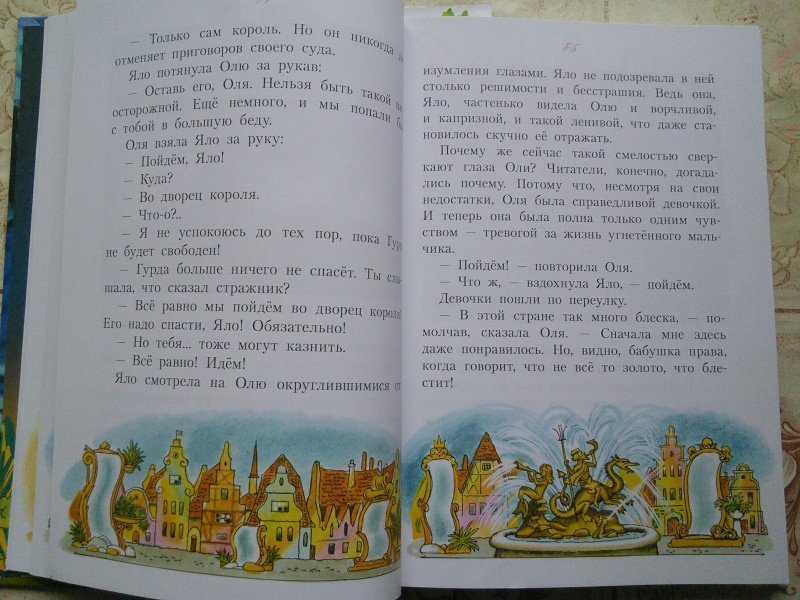 — Только сам король. Но он никогда не
отменяет приговоров своего суда.
Яло потянула Олю за рукав:
— Оставь его, Оля. Нельзя быть такой
осторожной. Ещё немного, и мы попали бы
с тобой в большую беду.
Оля взяла Яло за руку:
— Пойдём, Яло!
— Куда?
— Во дворец короля.
— Что-о?..
— Я не успокоюсь до тех пор, пока Гурд
не будет свободен!
— Гурда больше ничего не спасёт. Ты слы-
шала, что сказал стражник?
— Всё равно мы пойдём во дворец короля!
Его надо спасти, Яло! Обязательно!
— Но тебя... тоже могут казнить.
— Всё равно! Идём!
Яло смотрела на Олю округлившимися от
75
изумления глазами. Яло не подозревала в ней
столько решимости и бесстрашия. Ведь она,
Яло, частенько видела Олю и ворчливой,
и капризной, и такой ленивой, что даже ста-
новилось скучно её отражать.
Почему же сейчас такой смелостью свер-
кают глаза Оли? Читатели, конечно, догада-
лись почему. Потому что, несмотря на свои
недостатки, Оля была справедливой девочкой.
И теперь она была полна только одним чув-
ством — тревогой за жизнь угнетённого маль-
чика.
— Пойдём! — повторила Оля.
— Что ж, — вздохнула Яло, — пойдём.
Девочки пошли по переулку.
— В этой стране так много блеска, — по-
молчав, сказала Оля. — Сначала мне здесь
даже понравилось. Но, видно, бабушка права,
когда говорит, что не всё то золото, что бле-
стит!